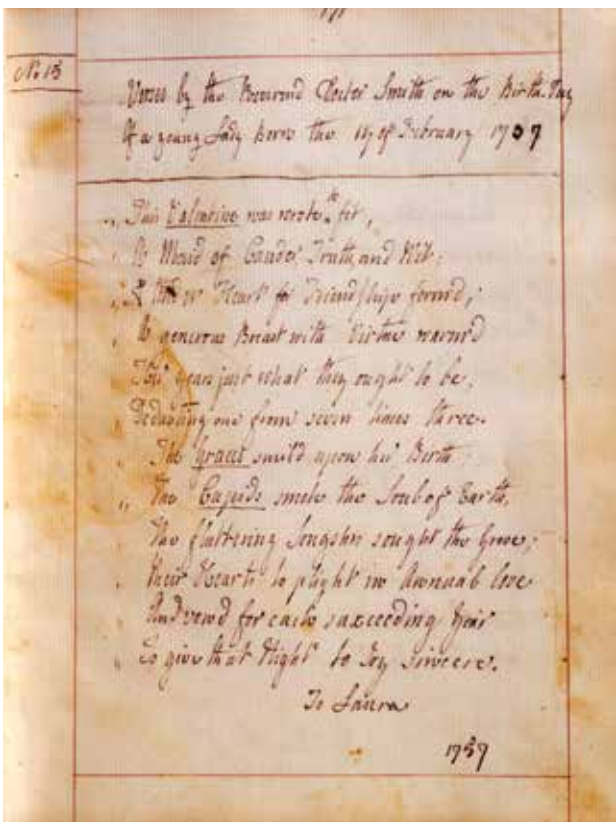 No 15
Verses by the Reverend Docter Smith on the Birth Day
Of a young Lady born the 14 of February 1757
"This Valentine was wrote to fit,
A Maid of Candor Truth, and Wit;
Heart for Friendship form'd;
A generous Breast with Virtue warm'd
years just what they ought to be,
Deducting one from seven times three.
The Graces smil'd upon her Birth
The Cupids smile the Soul of Earth,
The fluttering Songsters sought the Grove;
their Hearts to plight in Annual love
And vow'd for each succeeding Year
To give that Night to Joy sincere.
To Laura
1757